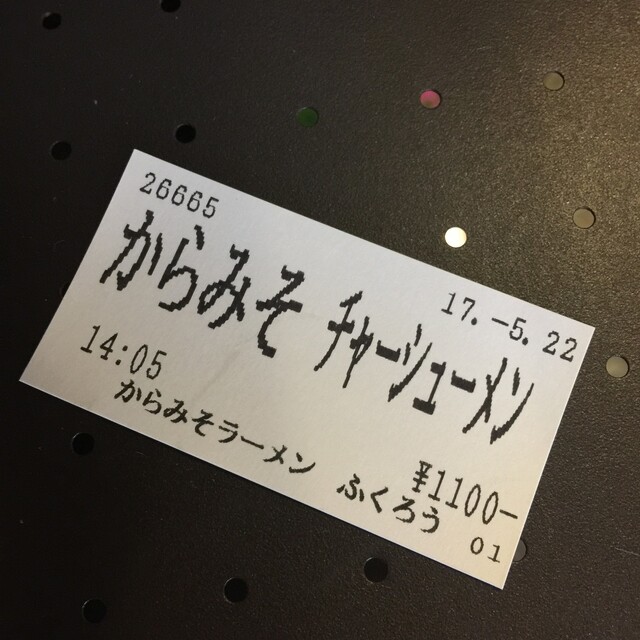 26665
17.-5.22
からみそ チャーシューメン
14:05
¥1100-
からみそラーメン ふくろう 01